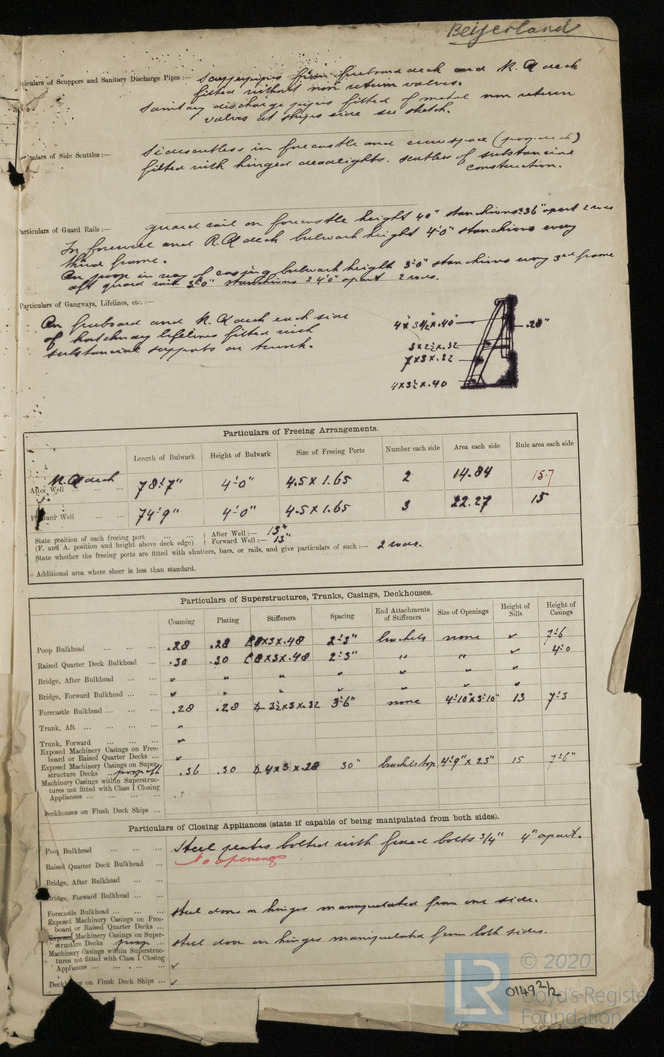 Beijerland
Particulars of Scuppers and Sanitary Discharge Pipes :— Scupperpipes from freeboard deck and R.Q deck
fitted without non return valves.
Sanitary discharge pipes fitted of metal non return
valves at ships side see sketch.
Particulars of Side Scuttles :— Sidescuttles in forecastle and crewspace (poop deck)
fitted with hinged deadlights. scuttles of substancial
construction.
Particulars of Guard Rails :— guard rail on forecastle height 40" stanchions 36" apart 2 rows
In forewell and R.Q deck bulwark height 4'0" stanchions every
third frame.
On poop in way of casing bulwark height 3'0" stanchions every 3rd frame
aft guard rail 3'0" stanchions 4'0" apart 2 rows.
Particulars of Gangways, Lifelines, etc. :—
On freeboard and R.Q deck each side
of hatchway lifelines fitted with
substancial supports on trunk.
4 x 3 1/2 x .40
.28"
3 x 2 1/2 x .32
7 x 3 x .32
4 x 3 1/2 x .40
Particulars of Freeing Arrangements.
Length of Bulwark Height of Bulwark Size of Freeing Ports Number each side Area each side Rule area each side
R.Q deck
After Well 78'-7" 4'-0" 4.5 x 1.65 2 14.84 15.7
Forward Well 74'-9" 4'-0" 4.5 x 1.65 3 22.27 15
State position of each freeing port After Well :— 13"
(F. and A. position and height above deck edge) Forward Well :— 13"
State whether the freeing ports are fitted with shutters, bars, or rails, and give particulars of such :— 2 rows.
Additional area where sheer is less than standard.
Particulars of Superstructures, Trunks, Casings, Deckhouses.
Coaming Plating Stiffeners Spacing End Attachments of Stiffeners Size of Openings Height of Sills Height of Casings
Poop Bulkhead .28 .28 8x3x.48 2'-3" brackets none 7'-6
Raised Quarter Deck Bulkhead .30 .30 8x3x.48 2'-3" " " 4'-0
Bridge, After Bulkhead
Bridge, Forward Bulkhead
Forecastle Bulkhead .28 .28 3 1/2x3x.32 3'-6" none 4'-10"x3'-10" 13 7'-3
Trunk, Aft
Trunk, Forward
Exposed Machinery Casings on Free-
board or Raised Quarter Decks
Exposed Machinery Casings on Super-
structure Decks poop aft .36 .30 4x3x.28 30" brackets top 4'-9" x 23" 15 7'-6"
Machinery Casings within Superstruc-
tures not fitted with Class I Closing
Appliances
Deckhouses on Flush Deck Ships
Particulars of Closing Appliances (state if capable of being manipulated from both sides).
Poop Bulkhead Steel plates bolted with fixed bolts 3/4" 4" apart.
Raised Quarter Deck Bulkhead No openings
Bridge, After Bulkhead
Bridge, Forward Bulkhead
Forecastle Bulkhead steel door on hinges manipulated from one side.
Exposed Machinery Casings on Free-
board or Raised Quarter Decks
Exposed Machinery Casings on Super-
structure Decks poop steel door on hinges manipulated from both sides.
Machinery Casings within Superstruc-
tures not fitted with Class I Closing
Appliances
Deckhouses on Flush Deck Ships
01492/2
LR © 2020
Lloyd's Register
Foundation